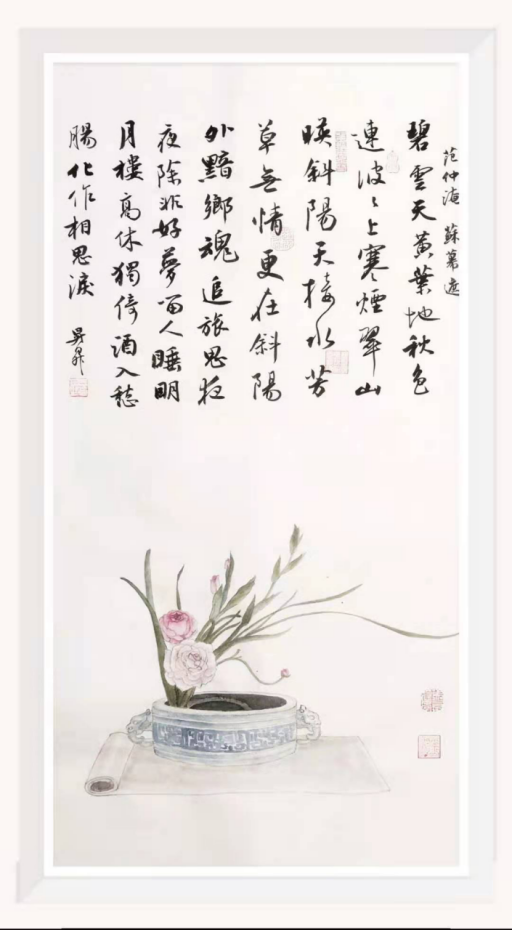 范仲淹 蘇幕遮
碧雲天黃葉地秋色
連波々上寒煙翠山
暎斜陽天接水芳
草無情更在斜陽
外黯鄉魂追旅思夜
夜除非好夢留人睡明
月樓高休獨倚酒入愁
腸化作相思淚